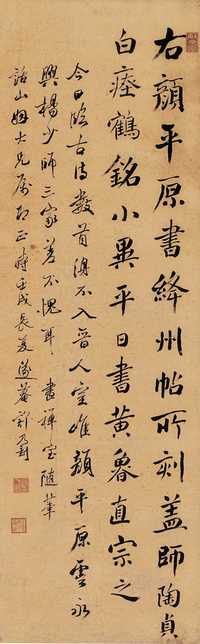 右顏平原書絳州帖所刻蓋師陶貞
白瘞鶴銘小異平日書黃魯直宗之
今日臨古詩數首得不入晉人室唯顏平原虛永
興楊少師三家差不愧耳 畫禪室隨筆
詁山姻大兄屬即正時壬戌長夏遂菴許乃釗